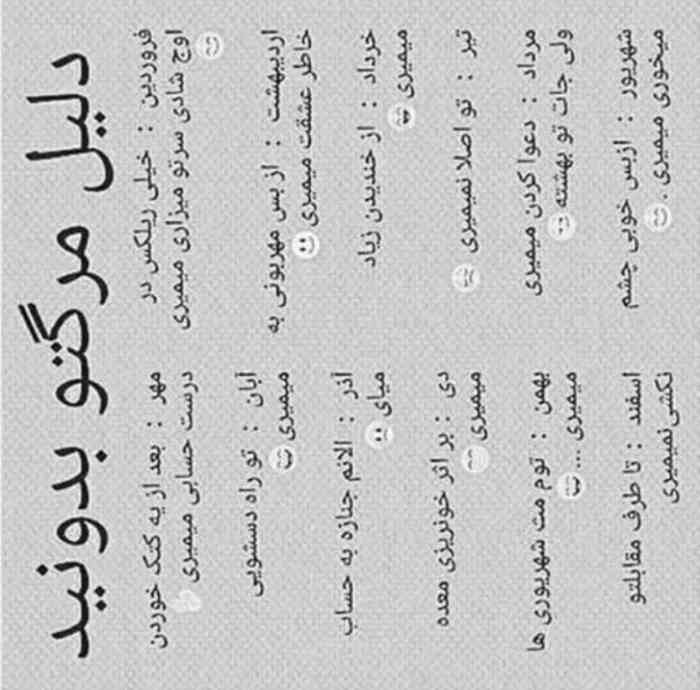 دلیل مرگتو بدونید
فروردین : خیلی ریلکس در
اوج شادی سرتو میزاری میمیری
اردیبهشت : از بس مهربونی به
خاطر عشقت میمیری
خرداد : از خندیدن زیاد
میمیری
تیر : تو اصلا نمیمیری
مرداد : دعوا کردن میمیری
ولی جات تو بهشته
شهریور : ازبس خوبی چشم
میخوری میمیری .
مهر : بعد از یه کتک خوردن
درست حسابی میمیری
آبان : تو راه دستشویی
میمیری
آذر : الانم جنازه به حساب
میای
دی : بر اثر خونریزی معده
میمیری
بهمن : توم مث شهریوری ها
میمیری ...
اسفند : تا طرف مقابلتو
نکشی نمیمیری